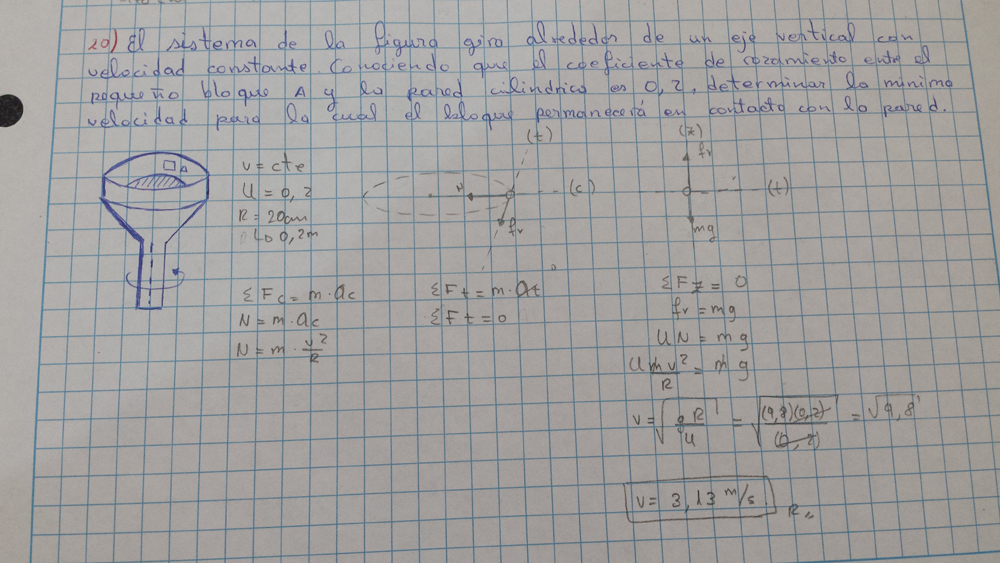 20) El sistema de la figura gira alrededor de un eje vertical con
velocidad constante. Conociendo que el coeficiente de rozamiento entre el
pequeño bloque A y la pared cilindrica es 0,2, determinar la minima
velocidad para la cual el bloque permanecerá en contacto con la pared.
A
v = cte
U = 0,2
R = 20cm
↳ 0,2m
(t)
N
(c)
fr
(z)
fr
(t)
mg
ΣFc = m·ac
N = m·ac
N = m·v²/R
ΣFt = m·at⁰
ΣFt = 0
ΣFz = 0
fr = mg
UN = mg
U m v²/R = m g
v = √(gR/U) = √((9,8)(0,2)/(0,2)) = √9,8
v = 3,13 m/s
R,,